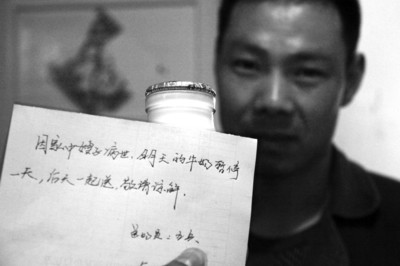 因家中嫂子病世,明天的牛奶暂停
一天,后天一起送,敬请谅解.
送奶员: